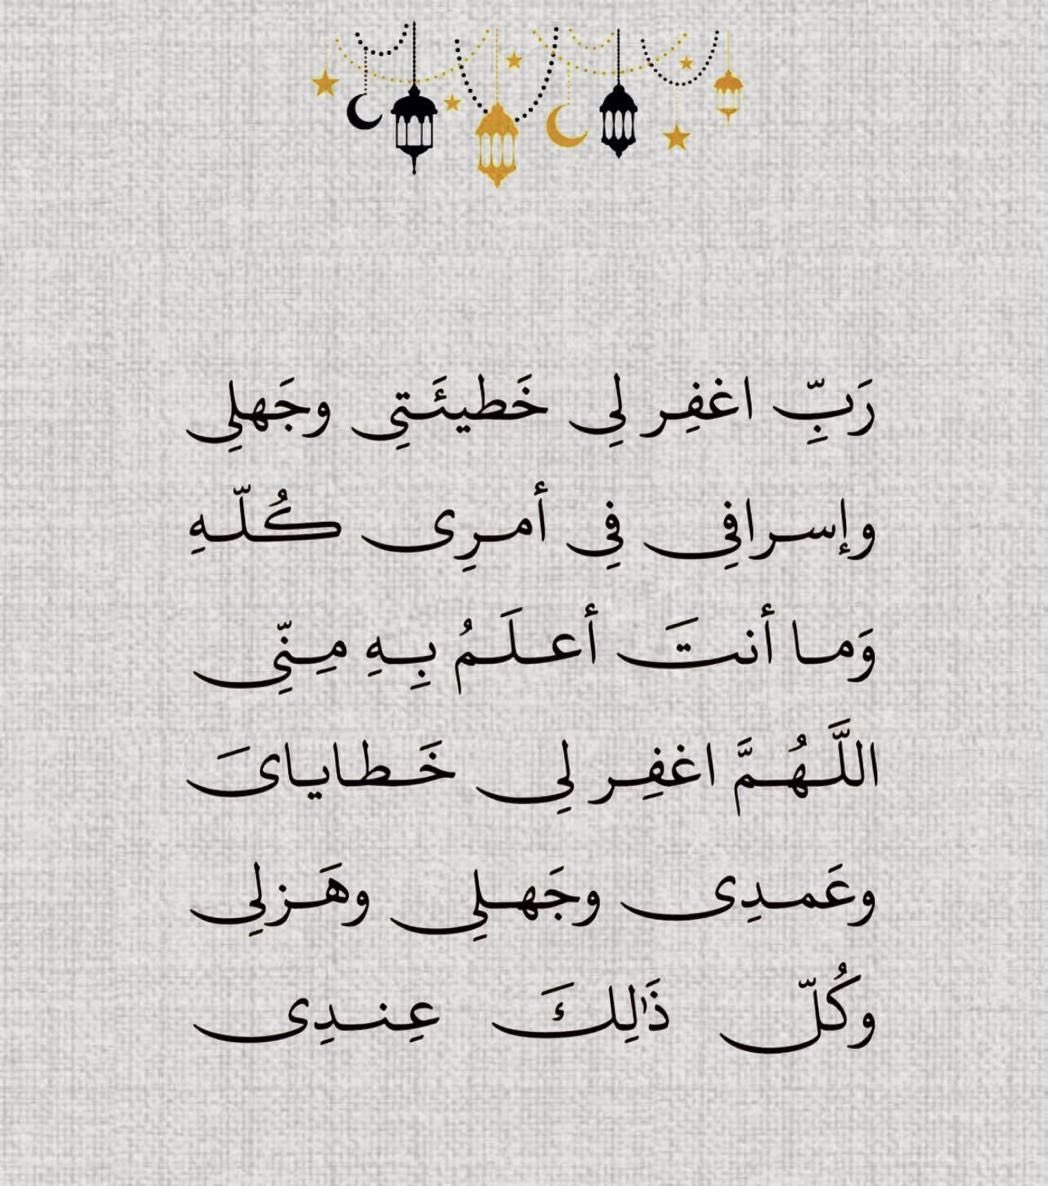 رَبِّ اغفِر لِى خَطيئَتِى وجَهلِى
وإسرافِى فِى أمرِى كُلّهِ
وَما أنتَ أعلَمُ بِهِ مِنِّى
اللَّهُمَّ اغفِر لِى خَطاياىَ
وعَمدِى وجَهلِى وهَزلِى
وكُلّ ذَٰلِكَ عِندِى